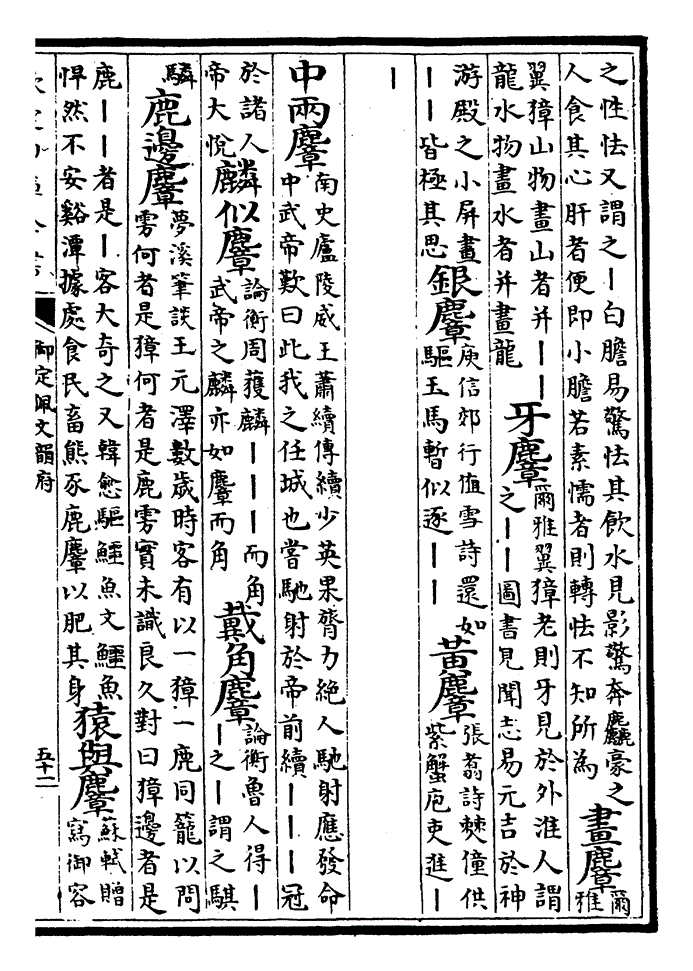 之性怯又謂之｜白膽易驚怯其飲水見影驚奔麤豪之
人食其心肝者便即小膽若素懦者則轉怯不知所為
畫麞
爾
雅
翼獐山物畫山者并｜｜
龍水物畫水者并畫龍
牙麞
爾雅翼獐老則牙見於外淮人謂
之｜｜圖書見聞志易元吉於神
游殿之小屏畫
｜｜皆極其思
銀麞
庾信郊行值雪詩還如
驅玉馬暫似逐｜｜
黃麞
張翥詩棘僮供
紫蟹庖吏進｜
｜
中兩麞
南史廬陵威王蕭續傳續少英果膂力絕人馳射應發命
中武帝歎曰此我之任城也嘗馳射於帝前續｜｜｜冠
於諸人
帝大悅
麟似麞
論衡周獲麟｜｜｜而角
武帝之麟亦如麞而角
戴角麞
論衡魯人得｜
｜之｜謂之騏
驎
鹿邊麞
夢溪筆談王元澤數歲時客有以一獐一鹿同籠以問
雱何者是獐何者是鹿雱實未識良久對曰獐邊者是
鹿｜｜者是｜客大奇之又韓愈驅鱷魚文鱷魚
悍然不安谿潭據處食民畜熊豕鹿麞以肥其身
猿與麞
蘇軾贈
寫御容
御定佩文韻府
五十二